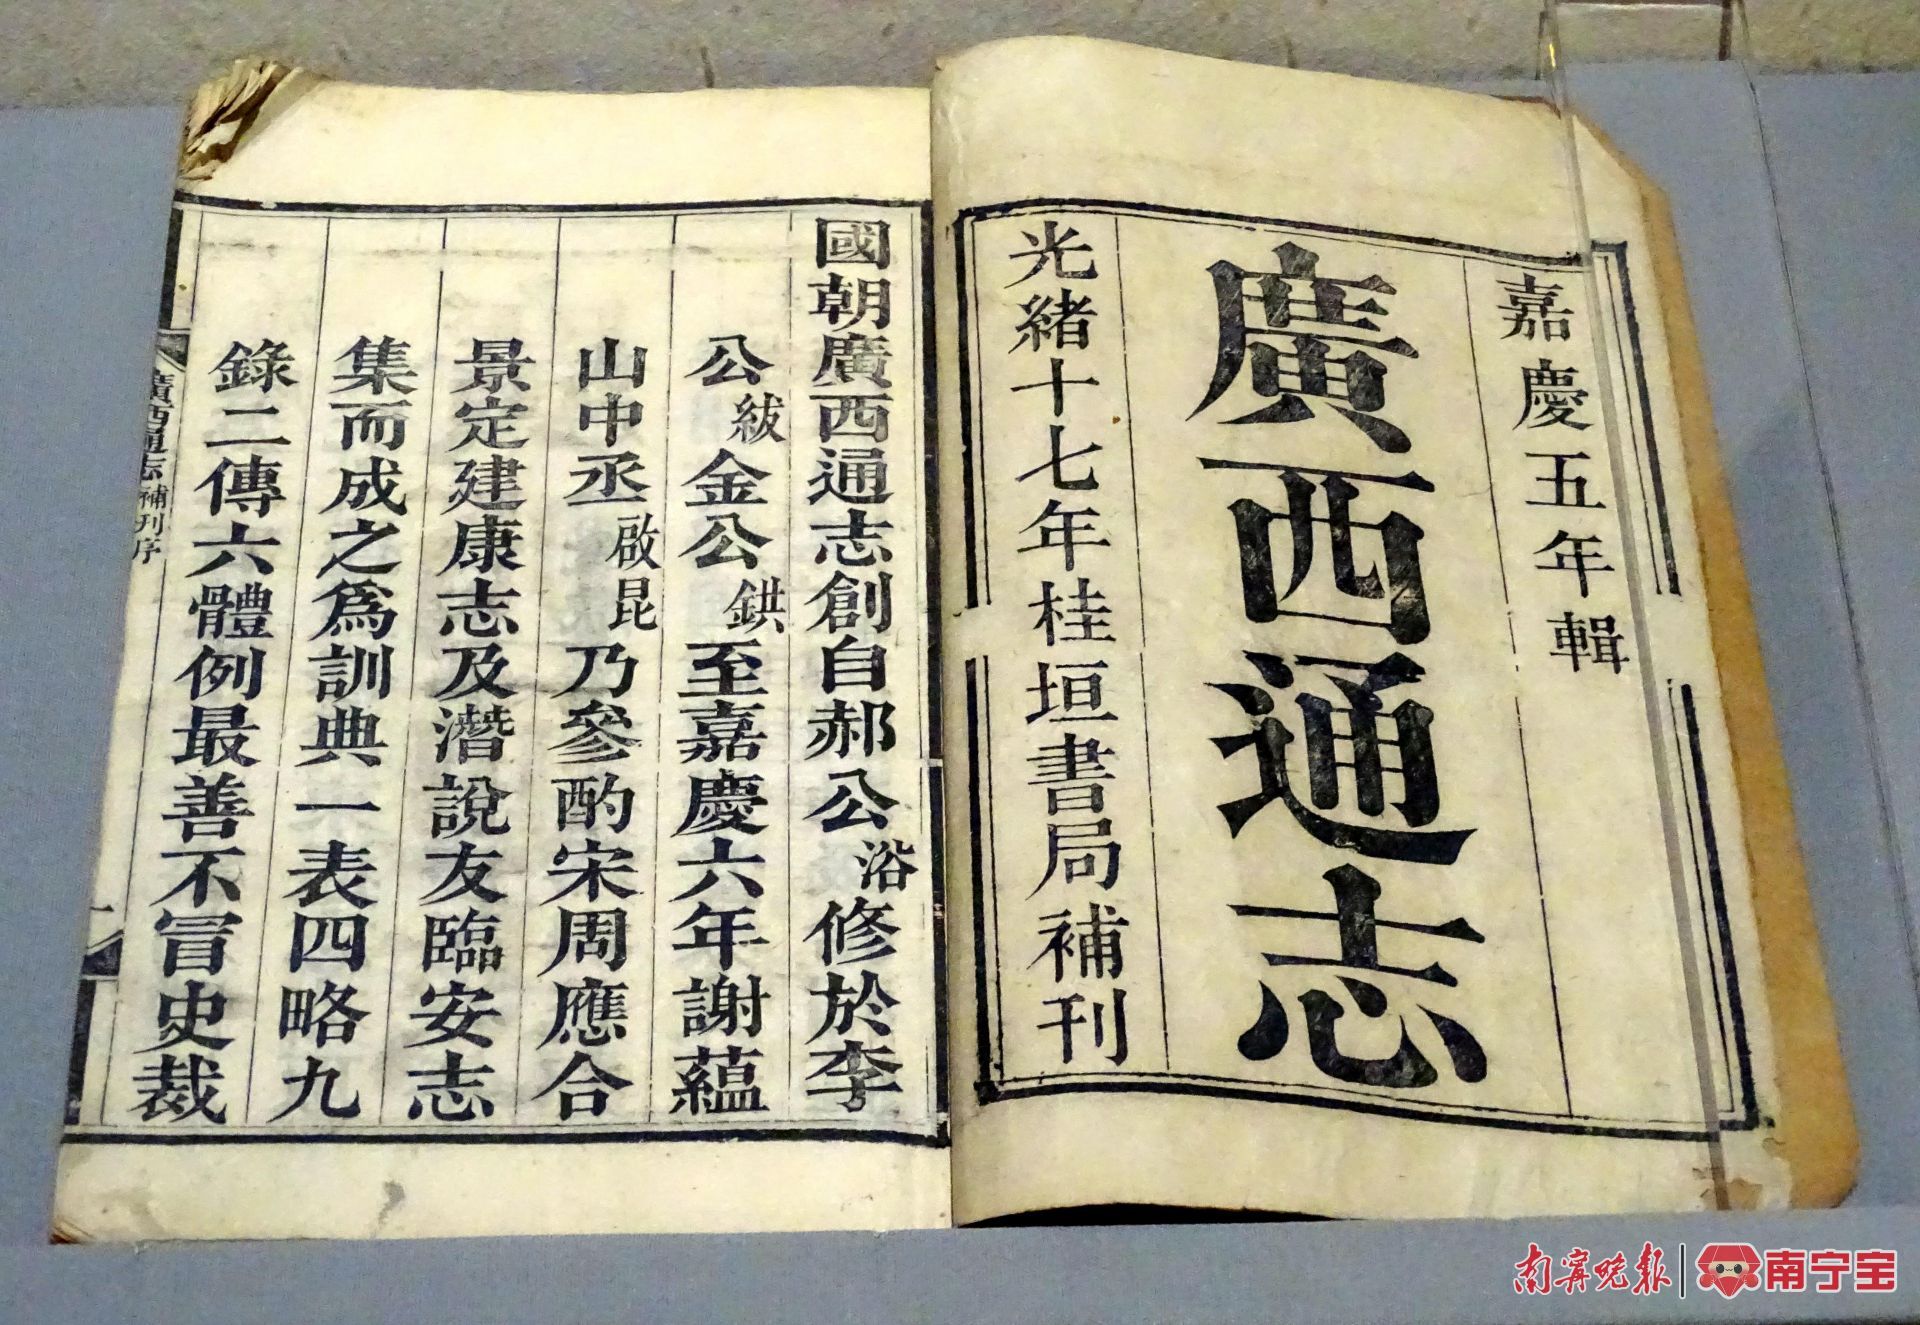 嘉慶五年輯
廣西通志
光緒十七年桂垣書局補刊
國朝廣西通志創自郝公浴修於李
公紱金公鉷至嘉慶六年謝蘊
山中丞啟昆乃參酌宋周應合
景定建康志及潛說友臨安志
集而成之為訓典一表四略九
錄二傳六體例最善不冒史裁
廣西通志補刊序
一
南寧晚报
南宁宝